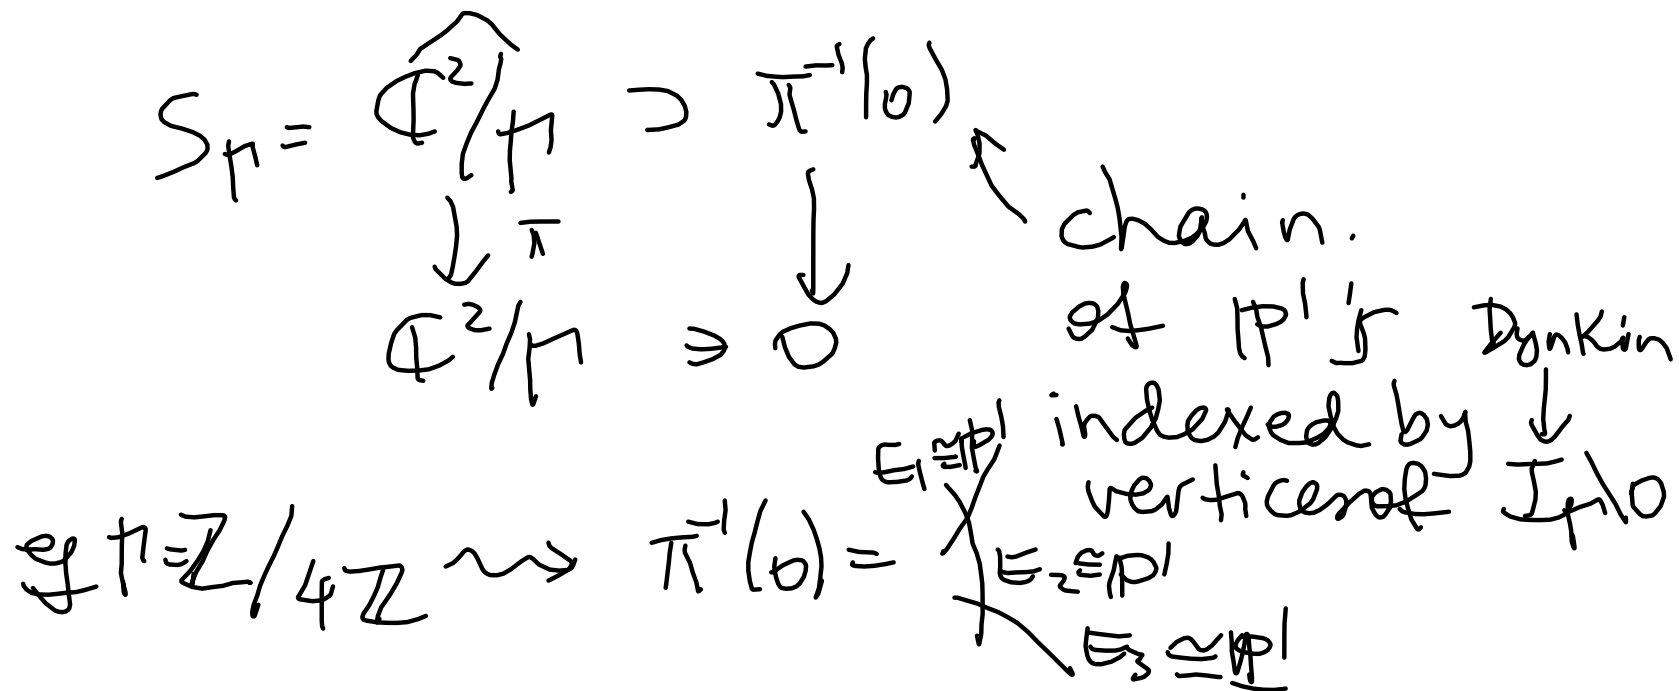 S_Γ = \widehat{ℂ²/Γ} ⊃ π⁻¹(0)
↓ π ↓
ℂ²/Γ ∋ 0
chain.
of ℙ¹'s Dynkin
↓
indexed by
vertices of I_Γ\0
eg Γ=ℤ/4ℤ ⇝ π⁻¹(0) =
E₁≅ℙ¹
E₂≅ℙ¹
E₃≃ℙ¹